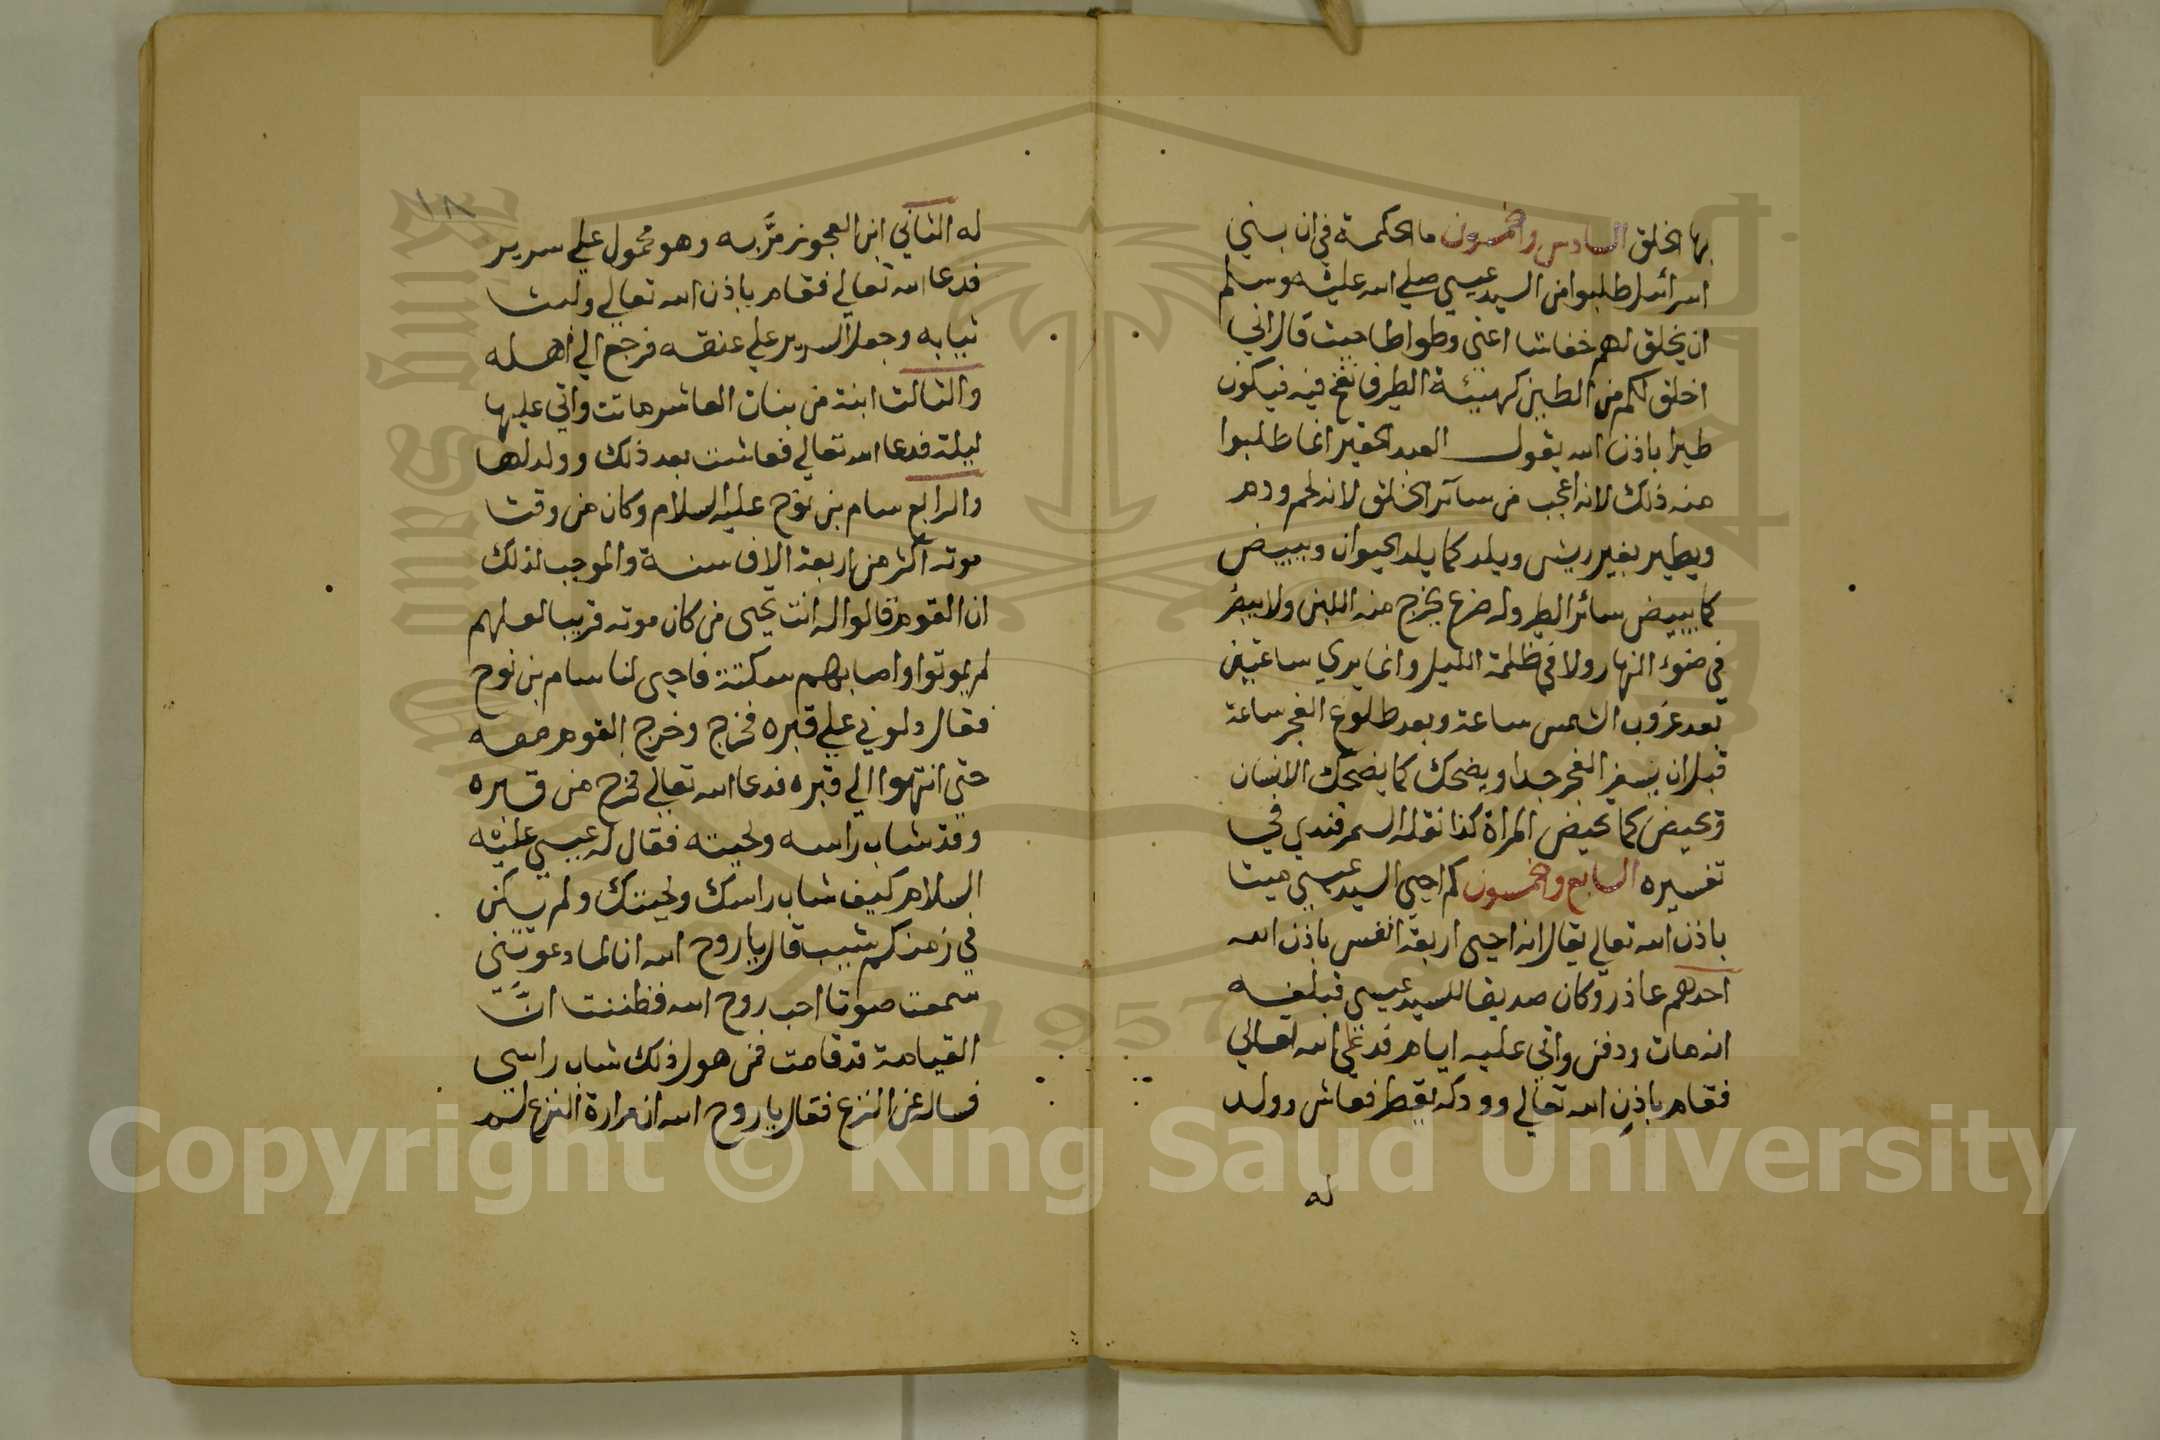 بها الخلق السادس والخمسون ما الحكمة في ان بني
اسرائيل طلبوا من السيد عيسي صلي الله عليه وسلم
ان يخلق لهم خفاشا اعني وطواطا حيث قال اني
اخلق لكم من الطين كهيئة الطير فانفخ فيه فيكون
طيرا باذن الله يقول العبد الحقير انما طلبوا
منه ذلك لانه اعجب من سائر الخلق لانه لحم ودم
ويطير بغير ريش ويلد كما يلد الحيوان ويبيض
كما يبيض سائر الطير وله ضرع يخرج منه اللبن ولا يبصر
في ضوء النهار ولا في ظلمة الليل وانما يري ساعتين
بعد غروب الشمس ساعة وبعد طلوع الفجر ساعة
قبل ان يسفر الفجر جدا ويضحك كما يضحك الانسان
وتحيض كما تحيض المراة كذا نقله السمرقندي في
تفسيره السابع والخمسون كم احيي السيد عيسي ميتا
باذن الله تعالي يقال انه احيي اربعة انفس باذن الله
احدهم عاذر وكان صديقا للسيد عيسي فبلغه
انه مات ودفن واتي عليه ايام فدعي الله تعالي
فقام باذن الله تعالي وودكه يقطر فعاش وولد
له
١٨
له الثاني ابن العجوز مَّر به وهو محمول علي سرير
فدعا الله تعالي فقام باذن الله تعالي ولبس
ثيابه وجعل السرير علي عنقه فرجع الي اهله
والثالث ابنة من بنات العاشر ماتت واتي عليها
ليلة فدعا الله تعالي فعاشت بعد ذلك وولد لها
والرابع سام بن نوح عليه السلام وكان من وقت
موته اكثر من اربعة الاف سنة والموجب لذلك
ان القوم قالوا له انت تحيي من كان موته قريبا لعلهم
لم يموتوا واصابهم سكتة فاحيي لنا سام بن نوح
فقال دلوني علي قبره فخرج وخرج القوم معه
حتي انتهوا الي قبره فدعا الله تعالي فخرج من قبره
وقد شاب راسه ولحيته فقال له عيسي عليه
السلام كيف شاب راسك ولحيتك ولم يكن
في زمنكم شيب قال يا روح الله انا لما دعوتني
سمعت صوتا اجب روح الله فظننت انَّ
القيامة قد قامت فمن هول ذلك شاب راسي
فساله عن النزع فقال يا روح الله ان مرارة النزع لم
1957
King Saud University
Copyright © King Saud University